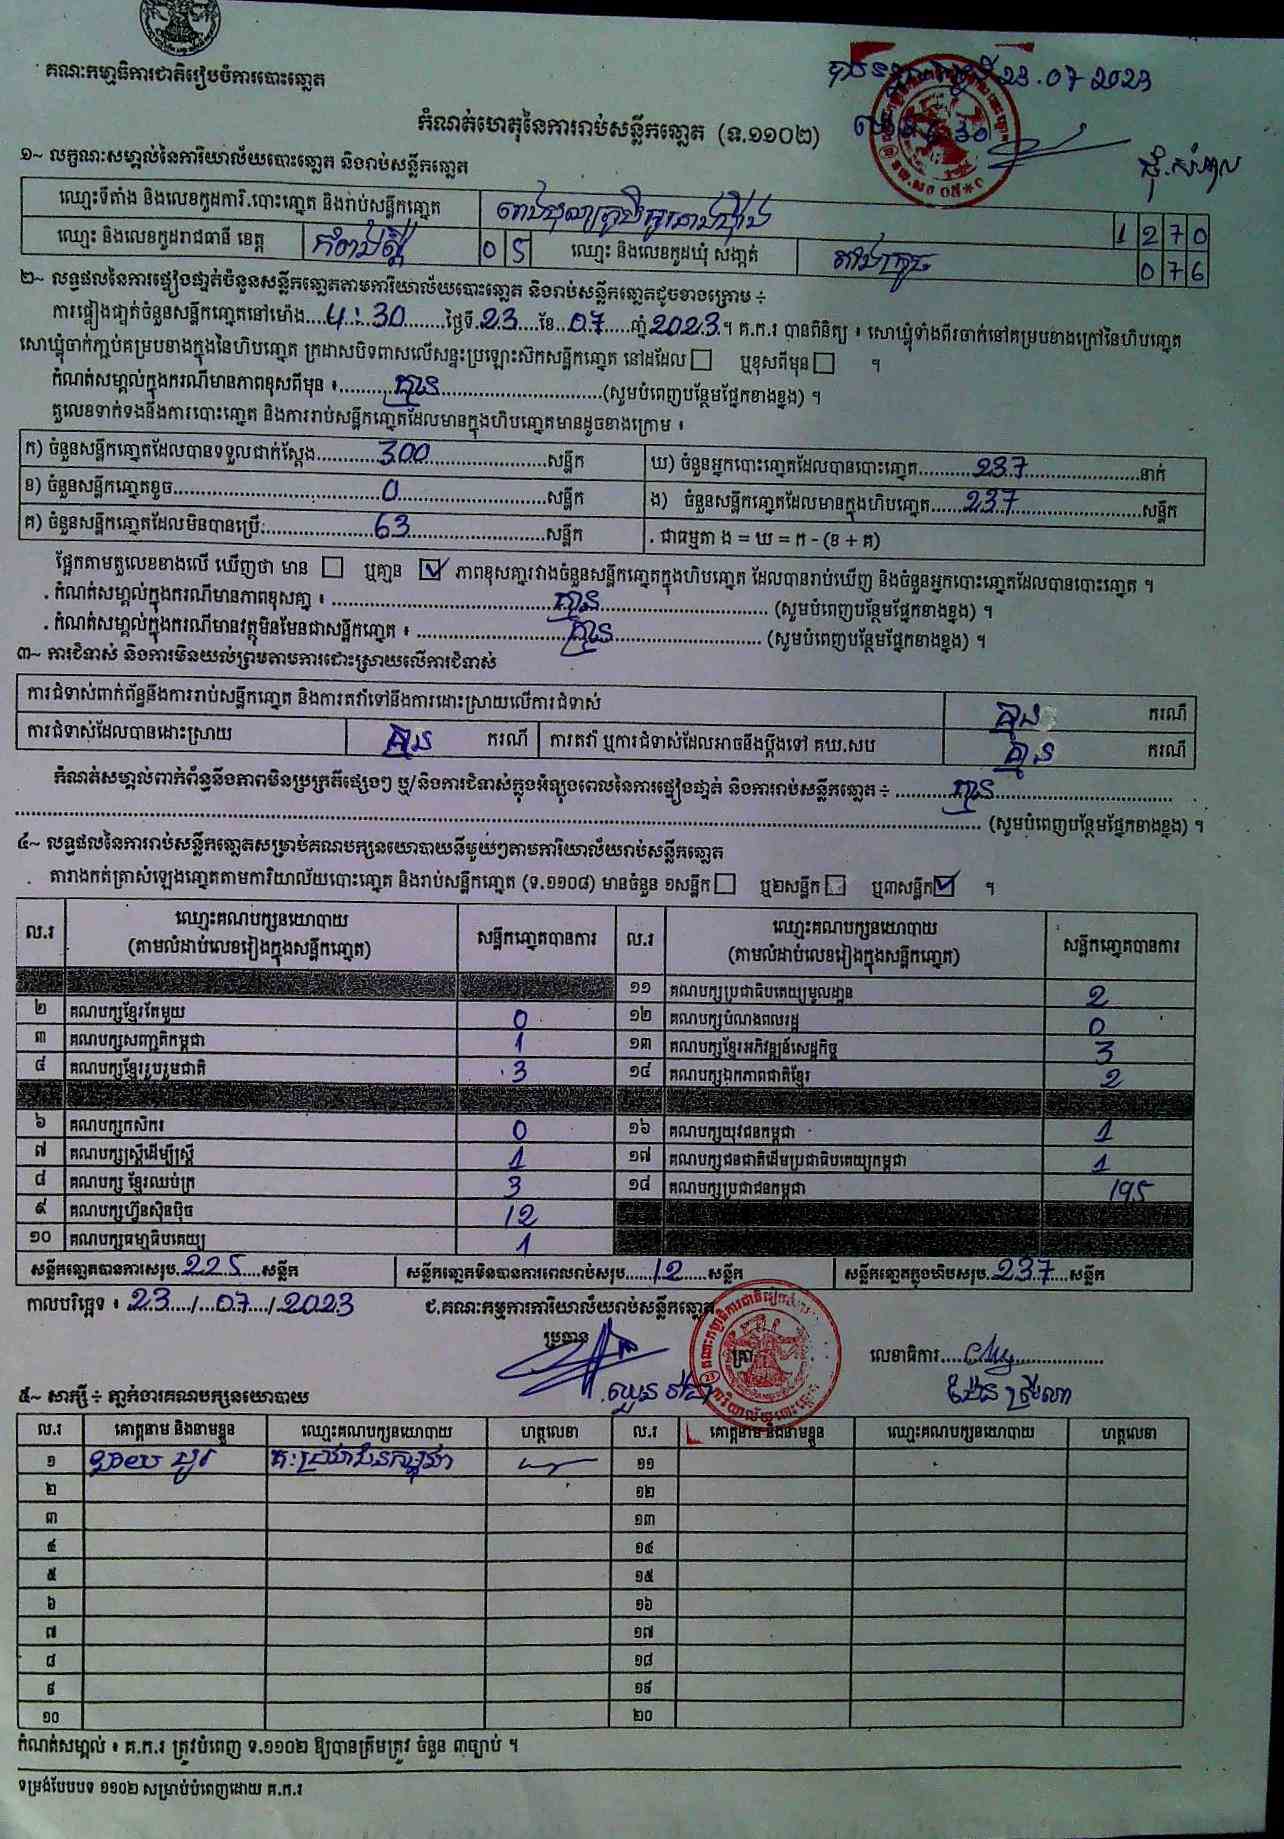 គណៈកម្មាធិការជាតិរៀបចំការបោះឆ្នោត
23.07 2023
កំណត់ហេតុនៃការរាប់សន្លឹកឆ្នោត (ទ.១១០២)
១~ លក្ខណៈសម្គាល់នៃការិយាល័យបោះឆ្នោត និងរាប់សន្លឹកឆ្នោត
ឈ្មោះទីតាំង និងលេខកូដការិ.បោះឆ្នោត និងរាប់សន្លឹកឆ្នោត 1 2 7 0
ឈ្មោះ និងលេខកូដរាជធានី ខេត្ត កំពង់ស្ពឺ 0 5 ឈ្មោះ និងលេខកូដឃុំ សង្កាត់ 0 7 6
២~ លទ្ធផលនៃការផ្ទៀងផ្ទាត់ចំនួនសន្លឹកឆ្នោតតាមការិយាល័យបោះឆ្នោត និងរាប់សន្លឹកឆ្នោតដូចខាងក្រោម ៖
ការផ្ទៀងផ្ទាត់ចំនួនសន្លឹកឆ្នោតនៅម៉ោង...4:30...ថ្ងៃទី.23..ខែ.07..ឆ្នាំ2023.។ គ.ក.រ បានពិនិត្យ ៖ សោឃ្លុំទាំងពីរចាក់នៅគម្របខាងក្រៅនៃហិបឆ្នោត
សោឃ្លុំចាក់ភ្ជាប់គម្របខាងក្នុងនៃហិបឆ្នោត ក្រដាសបិទពាសលើសន្ទះប្រឡោះស៊កសន្លឹកឆ្នោត នៅដដែល ☐ ឬខុសពីមុន ☐ ។
កំណត់សម្គាល់ក្នុងករណីមានភាពខុសពីមុន ៖...គ្មាន...(សូមបំពេញបន្ថែមផ្នែកខាងខ្នង) ។
តួលេខទាក់ទងនឹងការបោះឆ្នោត និងការរាប់សន្លឹកឆ្នោតដែលមានក្នុងហិបឆ្នោតមានដូចខាងក្រោម ៖
ក) ចំនួនសន្លឹកឆ្នោតដែលបានទទួលជាក់ស្តែង...300...សន្លឹក ឃ) ចំនួនអ្នកបោះឆ្នោតដែលបានបោះឆ្នោត...237...នាក់
ខ) ចំនួនសន្លឹកឆ្នោតខូច...0...សន្លឹក ង) ចំនួនសន្លឹកឆ្នោតដែលមានក្នុងហិបឆ្នោត...237...សន្លឹក
គ) ចំនួនសន្លឹកឆ្នោតដែលមិនបានប្រើ:...63...សន្លឹក . ជាធម្មតា ង = ឃ = ក - (ខ + គ)
ផ្អែកតាមតួលេខខាងលើ ឃើញថា មាន ☐ ឬគ្មាន ☑ ភាពខុសគ្នារវាងចំនួនសន្លឹកឆ្នោតក្នុងហិបឆ្នោត ដែលបានរាប់ឃើញ និងចំនួនអ្នកបោះឆ្នោតដែលបានបោះឆ្នោត ។
. កំណត់សម្គាល់ក្នុងករណីមានភាពខុសគ្នា ៖ ...គ្មាន... (សូមបំពេញបន្ថែមផ្នែកខាងខ្នង) ។
. កំណត់សម្គាល់ក្នុងករណីមានវត្ថុមិនមែនជាសន្លឹកឆ្នោត ៖ ...គ្មាន... (សូមបំពេញបន្ថែមផ្នែកខាងខ្នង) ។
៣~ ការជំទាស់ និងការមិនយល់ព្រមតាមការដោះស្រាយលើការជំទាស់
ការជំទាស់ពាក់ព័ន្ធនឹងការរាប់សន្លឹកឆ្នោត និងការតវ៉ាទៅនឹងការដោះស្រាយលើការជំទាស់ គ្មាន ករណី
ការជំទាស់ដែលបានដោះស្រាយ គ្មាន ករណី ការតវ៉ា ឬការជំទាស់ដែលអាចនឹងប្តឹងទៅ គឃ.សប គ្មាន ករណី
កំណត់សម្គាល់ពាក់ព័ន្ធនឹងភាពមិនប្រក្រតីផ្សេងៗ ឬ/និងការជំទាស់ក្នុងអំឡុងពេលនៃការផ្ទៀងផ្ទាត់ និងការរាប់សន្លឹកឆ្នោត ៖ ...គ្មាន...
... (សូមបំពេញបន្ថែមផ្នែកខាងខ្នង) ។
៤~ លទ្ធផលនៃការរាប់សន្លឹកឆ្នោតសម្រាប់គណបក្សនយោបាយនីមួយៗតាមការិយាល័យរាប់សន្លឹកឆ្នោត
. តារាងកត់ត្រាសំឡេងឆ្នោតតាមការិយាល័យបោះឆ្នោត និងរាប់សន្លឹកឆ្នោត (ទ.១១០៨) មានចំនួន ១សន្លឹក ☐ ឬ២សន្លឹក ☐ ឬ៣សន្លឹក ☑ ។
ល.រ ឈ្មោះគណបក្សនយោបាយ (តាមលំដាប់លេខរៀងក្នុងសន្លឹកឆ្នោត) សន្លឹកឆ្នោតបានការ ល.រ ឈ្មោះគណបក្សនយោបាយ (តាមលំដាប់លេខរៀងក្នុងសន្លឹកឆ្នោត) សន្លឹកឆ្នោតបានការ
១១ គណបក្សប្រជាធិបតេយ្យមូលដ្ឋាន 2
២ គណបក្សខ្មែរតែមួយ 0 ១២ គណបក្សបំណងពលរដ្ឋ 0
៣ គណបក្សសញ្ជាតិកម្ពុជា 1 ១៣ គណបក្សខ្មែរអភិវឌ្ឍន៍សេដ្ឋកិច្ច 3
៤ គណបក្សខ្មែររួបរួមជាតិ 3 ១៤ គណបក្សឯកភាពជាតិខ្មែរ 2
៦ គណបក្សកសិករ 0 ១៦ គណបក្សយុវជនកម្ពុជា 1
៧ គណបក្សស្ត្រីដើម្បីស្ត្រី 1 ១៧ គណបក្សជនជាតិដើមប្រជាធិបតេយ្យកម្ពុជា 1
៨ គណបក្ស ខ្មែរឈប់ក្រ 3 ១៨ គណបក្សប្រជាជនកម្ពុជា 195
៩ គណបក្សហ្វ៊ុនស៊ិនប៉ិច 12
១០ គណបក្សធម្មាធិបតេយ្យ 1
សន្លឹកឆ្នោតបានការសរុប.225...សន្លឹក សន្លឹកឆ្នោតមិនបានការពេលរាប់សរុប...12...សន្លឹក សន្លឹកឆ្នោតក្នុងហិបសរុប.237...សន្លឹក
កាលបរិច្ឆេទ ៖ .23.../...07.../.2023 ជ.គណៈកម្មការការិយាល័យរាប់សន្លឹកឆ្នោត
ប្រធាន ត្រា លេខាធិការ
៥~ សាក្សី ៖ ភ្នាក់ងារគណបក្សនយោបាយ
ល.រ គោត្តនាម និងនាមខ្លួន ឈ្មោះគណបក្សនយោបាយ ហត្ថលេខា ល.រ គោត្តនាម និងនាមខ្លួន ឈ្មោះគណបក្សនយោបាយ ហត្ថលេខា
១ គ.ប្រជាជនកម្ពុជា ១១
២ ១២
៣ ១៣
៤ ១៤
៥ ១៥
៦ ១៦
៧ ១៧
៨ ១៨
៩ ១៩
១០ ២០
កំណត់សម្គាល់ ៖ គ.ក.រ ត្រូវបំពេញ ទ.១១០២ ឱ្យបានត្រឹមត្រូវ ចំនួន ៣ច្បាប់ ។
ទម្រង់បែបបទ ១១០២ សម្រាប់បំពេញដោយ គ.ក.រ